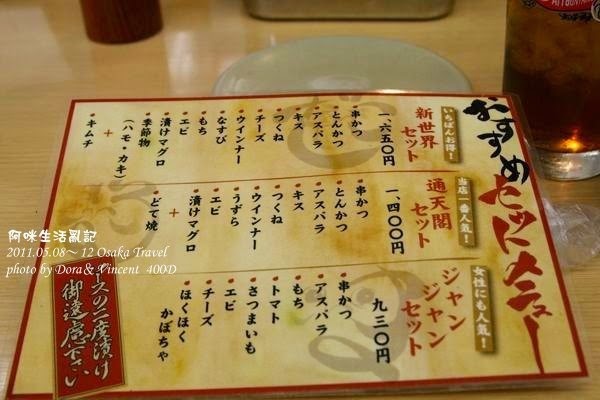 おすすめセットメニュー
いちばんお得!
新世界セット
一、六五〇円
串かつ
とんかつ
アスパラ
キス
つくね
チーズ
ウインナー
なすび
もち
エビ
漬けマグロ
季節物
(ハモ・カキ)
+
キムチ
当店一番人気!
通天閣セット
一、四〇〇円
串かつ
とんかつ
アスパラ
キス
つくね
ウインナー
うずら
エビ
漬けマグロ
+
どて焼
女性にも人気!
ジャンジャンセット
九三〇円
串かつ
アスパラ
もち
トマト
さつまいも
エビ
チーズ
ほくほくかぼちゃ
ソースの二度漬け
御遠慮下さい
阿咪生活亂記
2011.05.08~12 Osaka Travel
photo by Dora & Vincent 400D